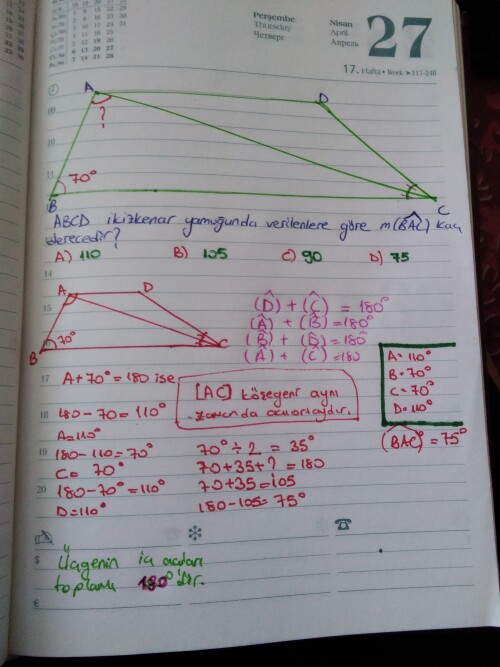 Perşembe
Thursday
Четверг
Nisan
April
Апрель
27
17. Hafta • Week ➤ 117-248
A
D
?
70°
B
C
ABCD ikizkenar yamuğunda verilenlere göre m(BAC) kaç
derecedir?
A) 110 B) 105 C) 90 D) 75
A D
B 70° C
(D̂) + (Ĉ) = 180°
(Â) + (B̂) = 180°
(B̂) + (D̂) = 180°
(Â) + (Ĉ) = 180
A = 110°
B = 70°
C = 70°
D = 110°
(BAC)° = 75°
[AC] köşegeni aynı
zamanda açıortaydır.
17 A + 70° = 180 ise
18 180 - 70 = 110°
A = 110°
19 180 - 110 = 70°
C = 70°
20 180 - 70° = 110°
D = 110°
70° ÷ 2 = 35°
70 + 35 + ? = 180
70 + 35 = 105
180 - 105 = 75°
Üçgenin iç açıları
toplamı 180°'dir.